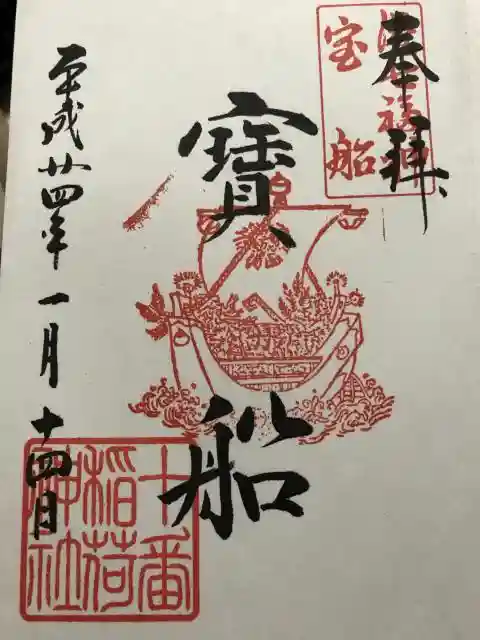 奉拝
港七福神
宝船
寶船
平成廿四年一月十四日
十番
稲荷
神社